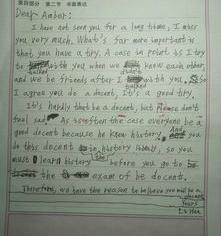 第四部分 第二节 书面表达
Dear Amber:
I have not seen you for a long time, I miss
you very much. What's far more important is
that you have a try. A case in point is I try
to talked with you when we didn't know each other,
and we be friends after I talked with you. So
I agree you do a decent. It's a good try.
It's hardly that be a decent, but Please don't
fool sad. As is often the case everyone be a
good decent because he know history. And you
do this decent in history, so you
must learn history before you go to
the exam of be decent.
Therefore, we have the reason to believe you will be a
decent
Yours
Li Hua